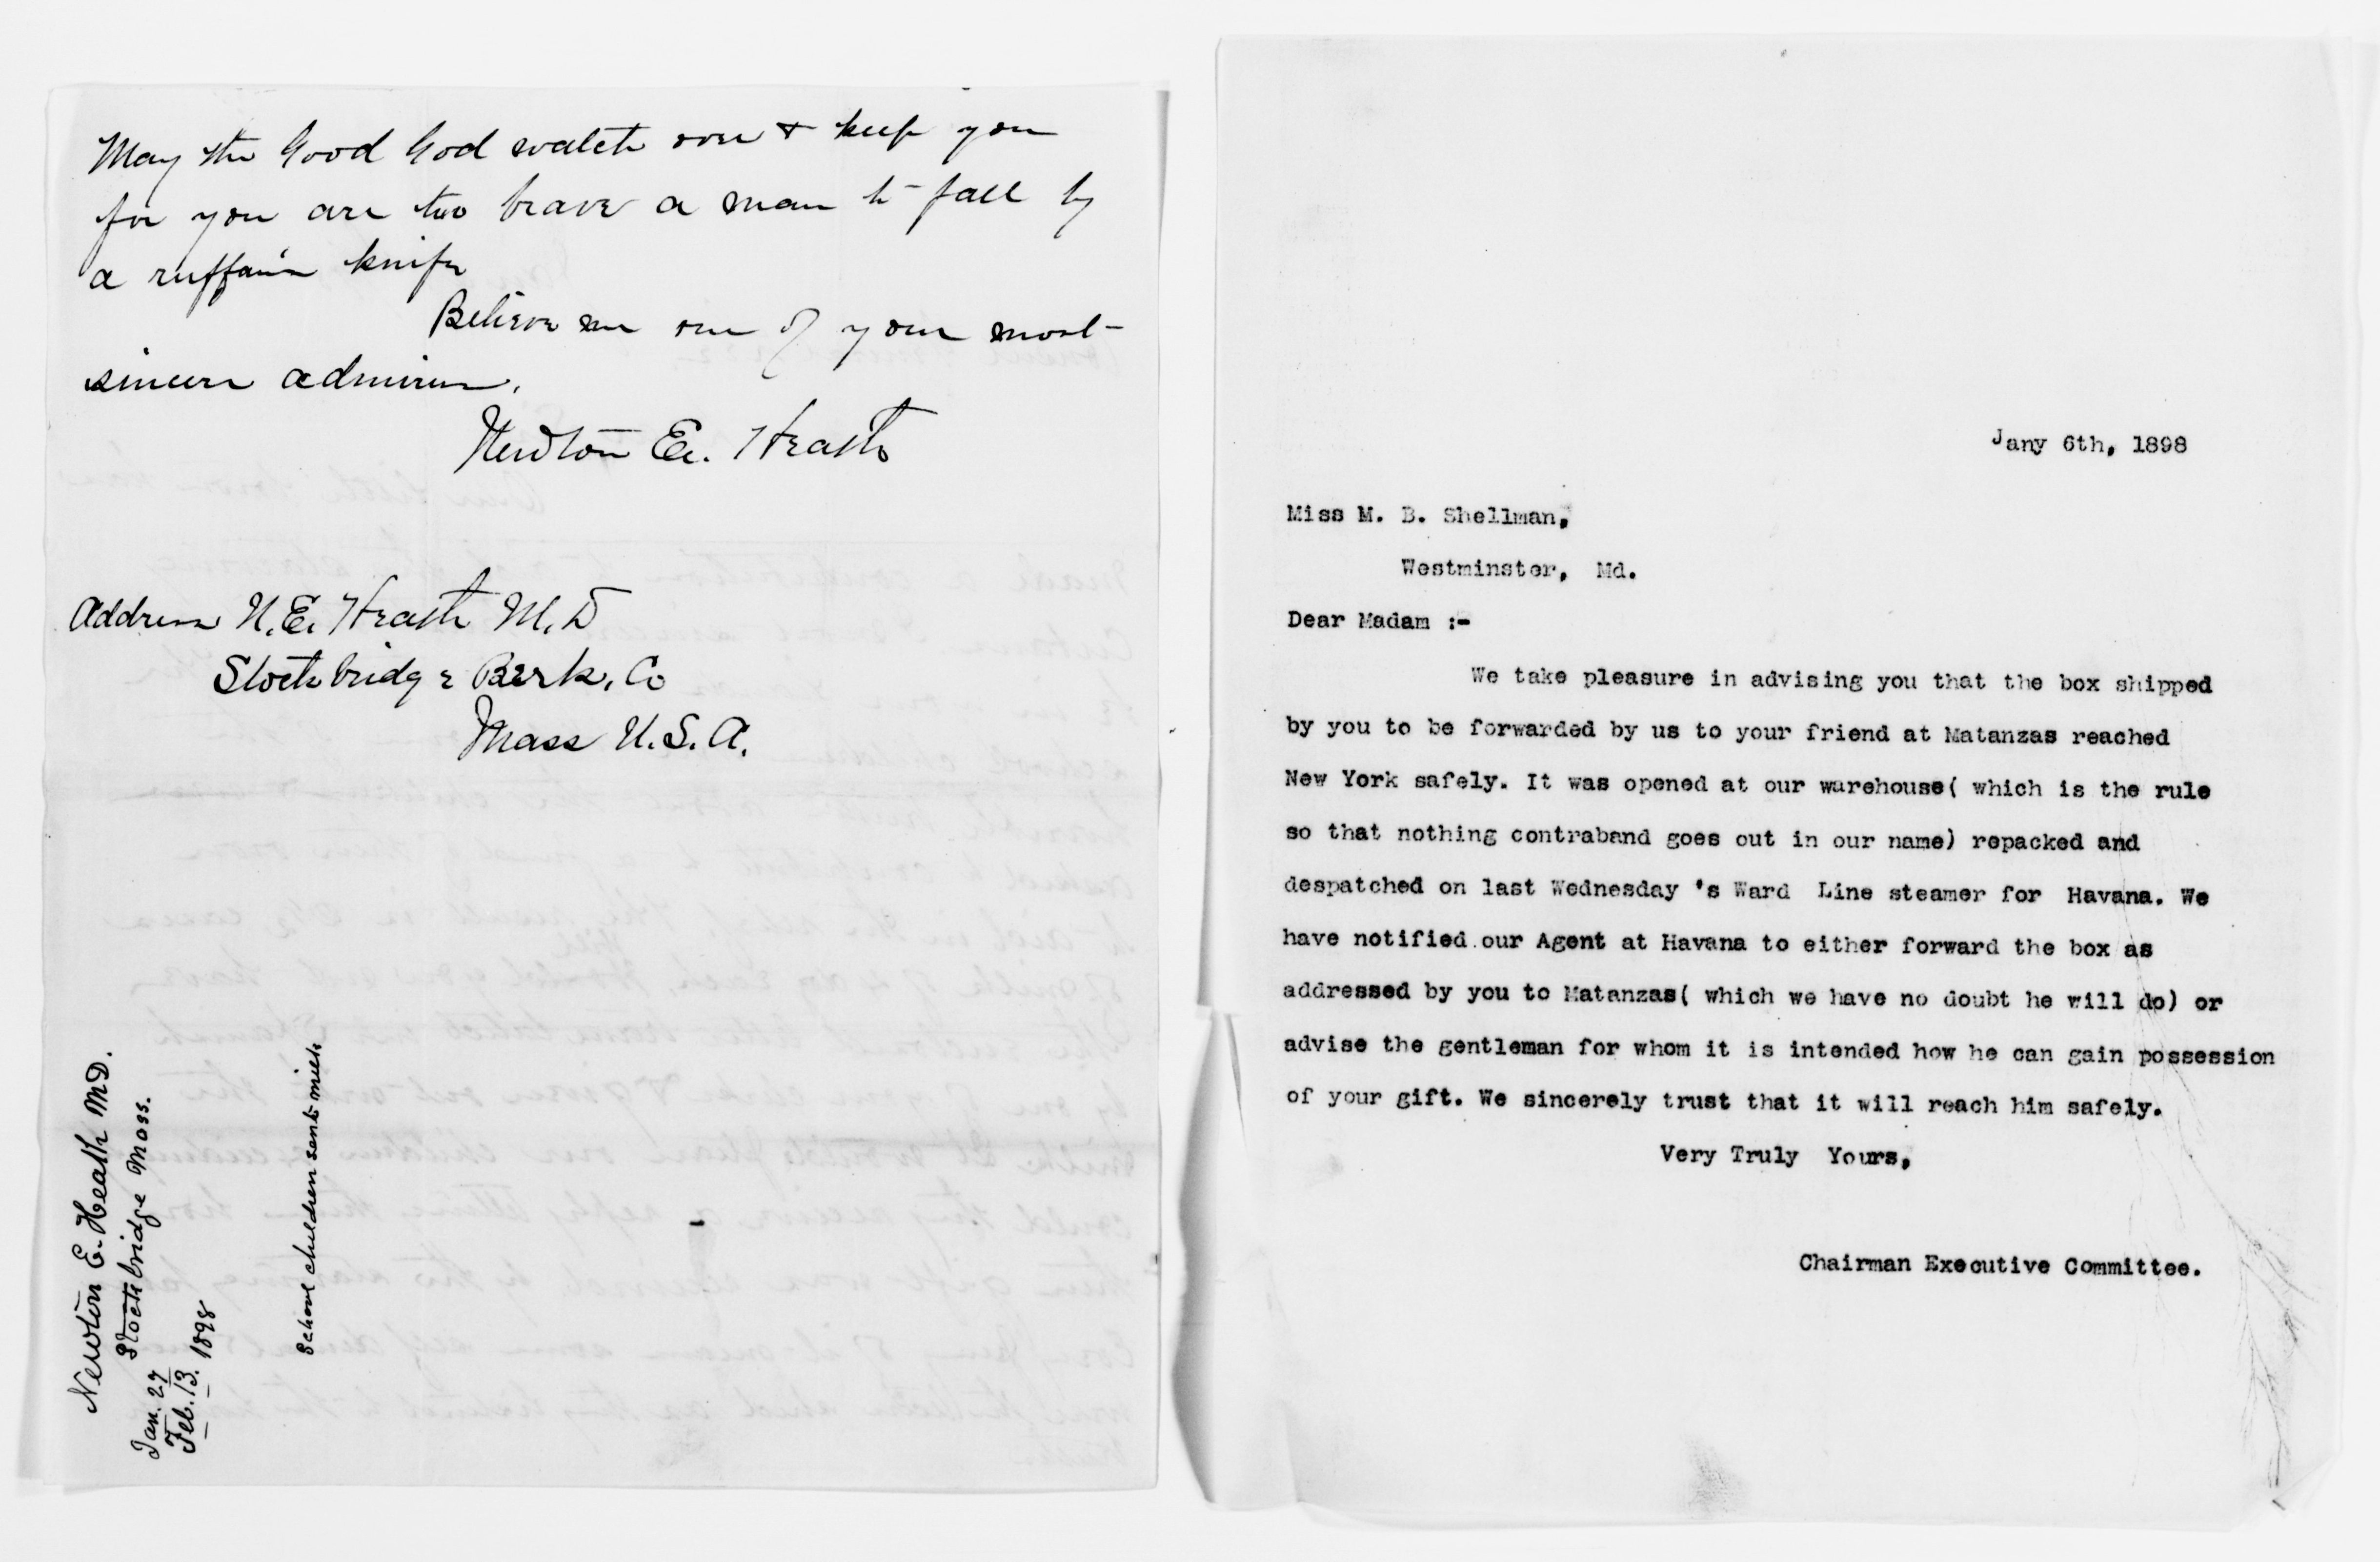 May the Good God watch over & keep you
for you are two brave a man to fall by
a ruffain knife
Believe me one of your most
sincere admirers.
Newton E. Heath
Address N. E. Heath M. D
Stockbridge Berk. Co
Mass U. S. A.
Newton E. Heath MD.
Stockbridge Mass.
Jan. 27
Feb. 13. 1898
School children sends milk
Jany 6th, 1898
Miss M. B. Shellman,
Westminster, Md.
Dear Madam :-
We take pleasure in advising you that the box shipped
by you to be forwarded by us to your friend at Matanzas reached
New York safely. It was opened at our warehouse( which is the rule
so that nothing contraband goes out in our name) repacked and
despatched on last Wednesday 's Ward Line steamer for Havana. We
have notified our Agent at Havana to either forward the box as
addressed by you to Matanzas( which we have no doubt he will do) or
advise the gentleman for whom it is intended how he can gain possession
of your gift. We sincerely trust that it will reach him safely.
Very Truly Yours,
Chairman Executive Committee.